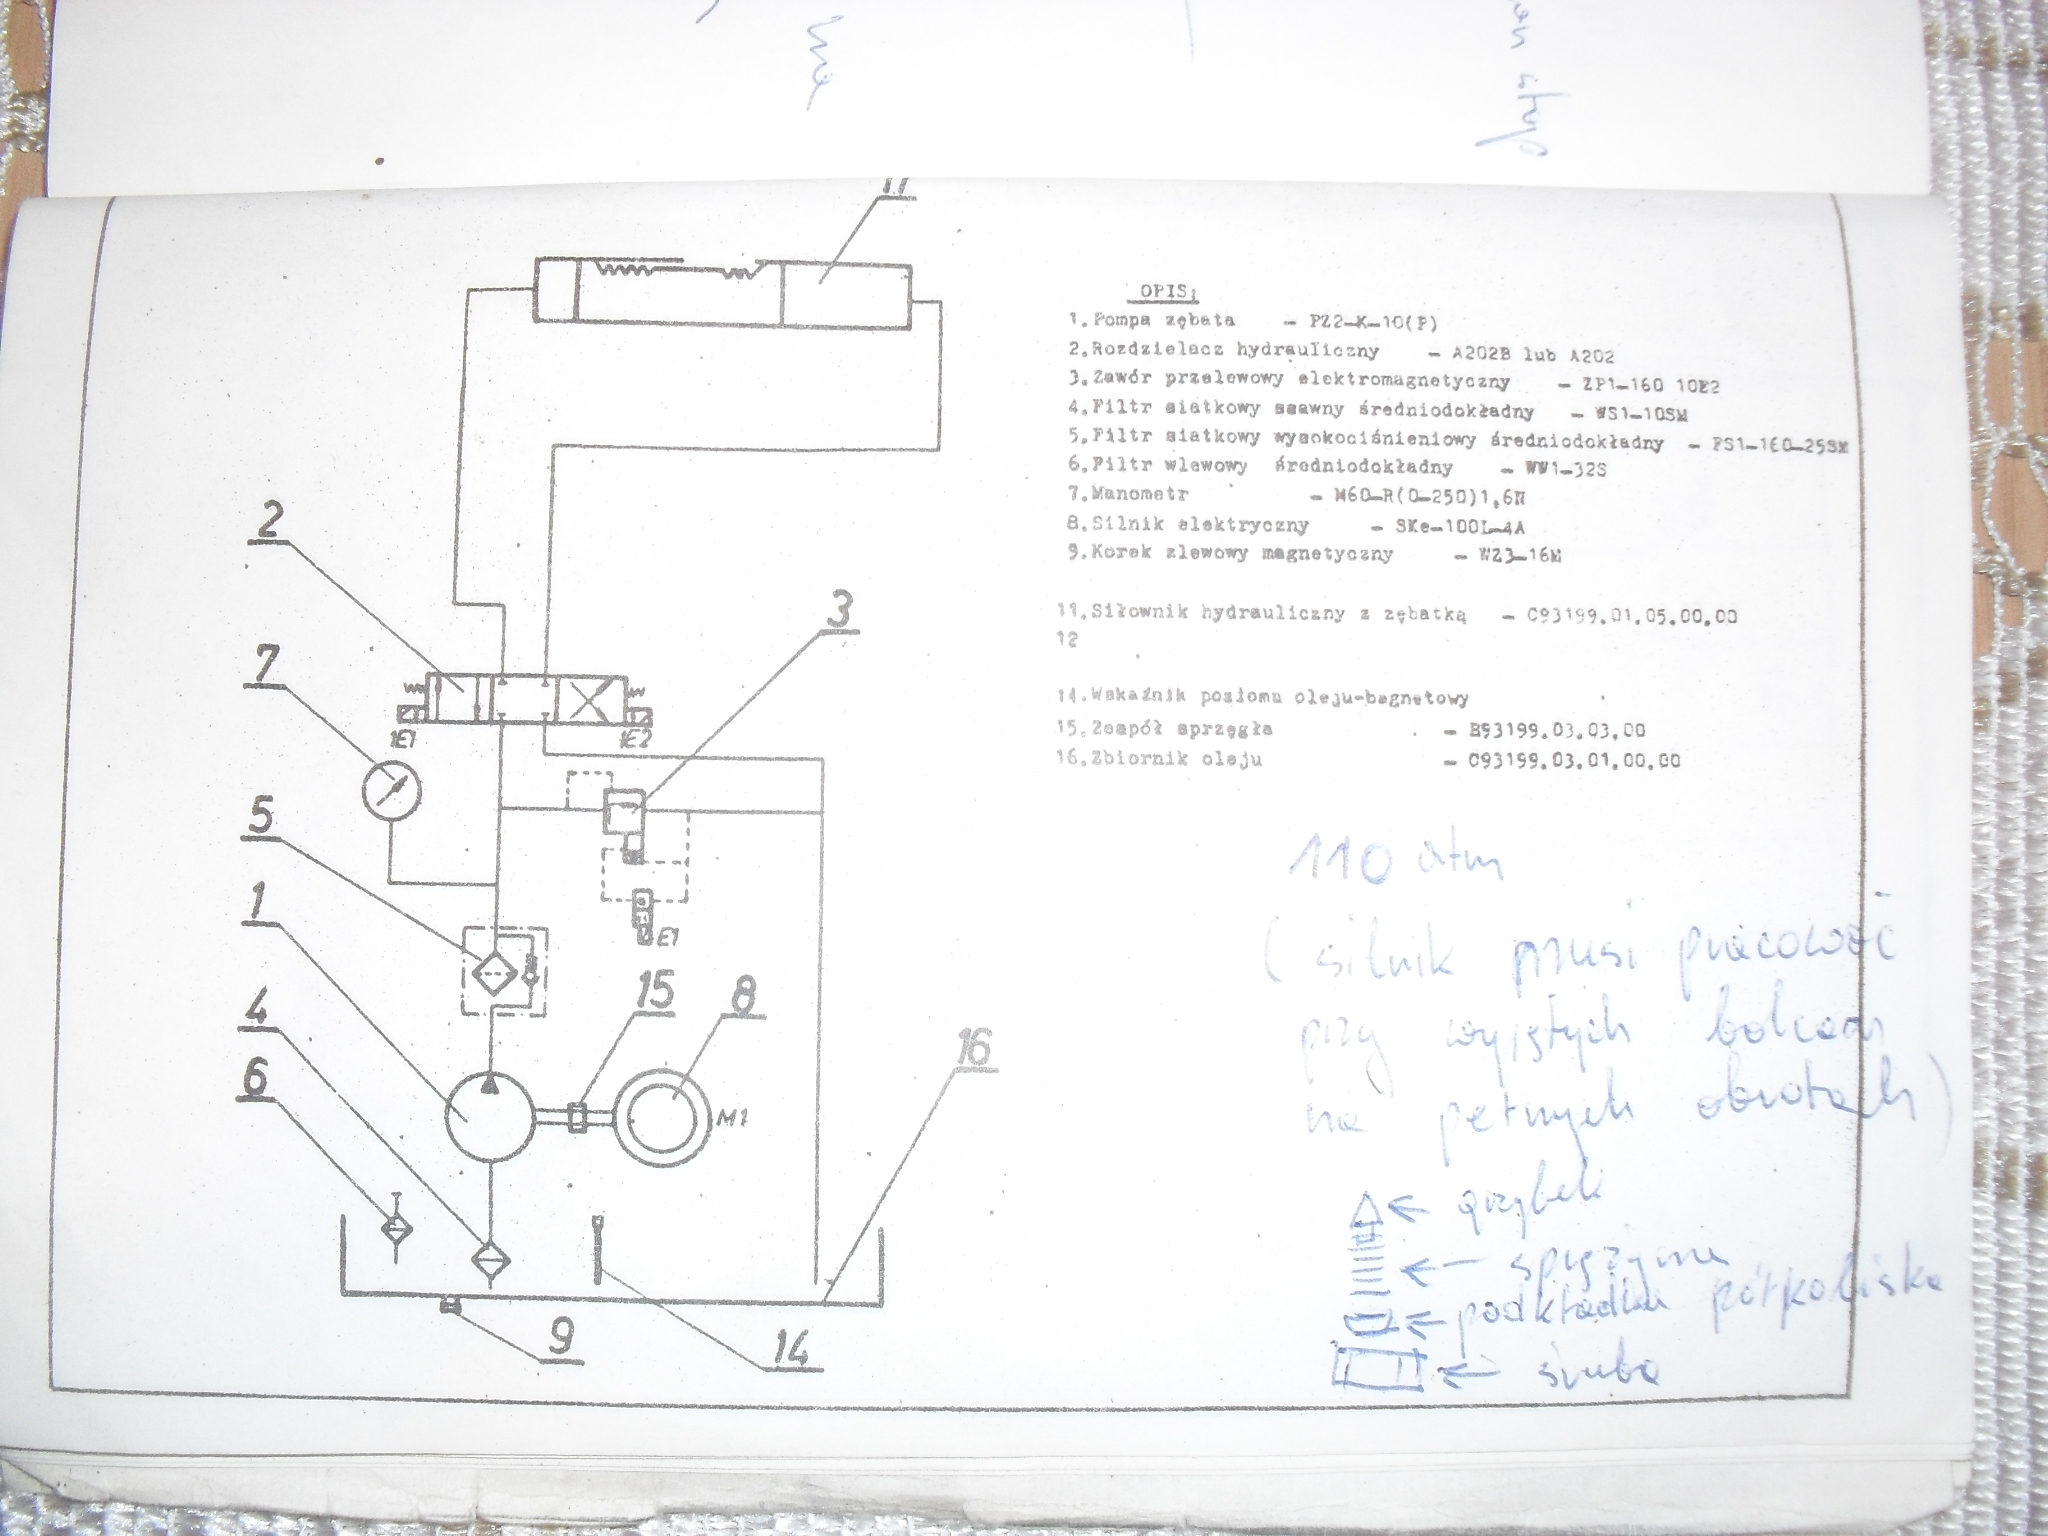 na
11
OPIS:
1. Pompa zębata - PZ2-K-10(P)
2. Rozdzielacz hydrauliczny - A202B lub A202
3. Zawór przelewowy elektromagnetyczny - ZP1-160 10E2
4. Filtr siatkowy ssawny średniodokładny - WS1-10SM
5. Filtr siatkowy wysokociśnieniowy średniodokładny - FS1-160-25SM
6. Filtr wlewowy średniodokładny - WW1-32S
7. Manometr - M60-R(0-250)1,6N
8. Silnik elektryczny - SKe-100L-4A
9. Korek zlewowy magnetyczny - WZ3-16M
11. Siłownik hydrauliczny z zębatką - C93199.01.05.00.00
12
14. Wskaźnik poziomu oleju-bagnetowy
15. Zespół sprzęgła - B93199.03.03.00
16. Zbiornik oleju - C93199.03.01.00.00
2
3
7
1E1
1E2
5
E1
1
15
8
4
16
6
M1
9
14
110 atm
( silnik musi pracować
przy wyjętych bolcach
na pełnych obrotach )
grzybek
sprężyna
podkładka półkolista
śruba